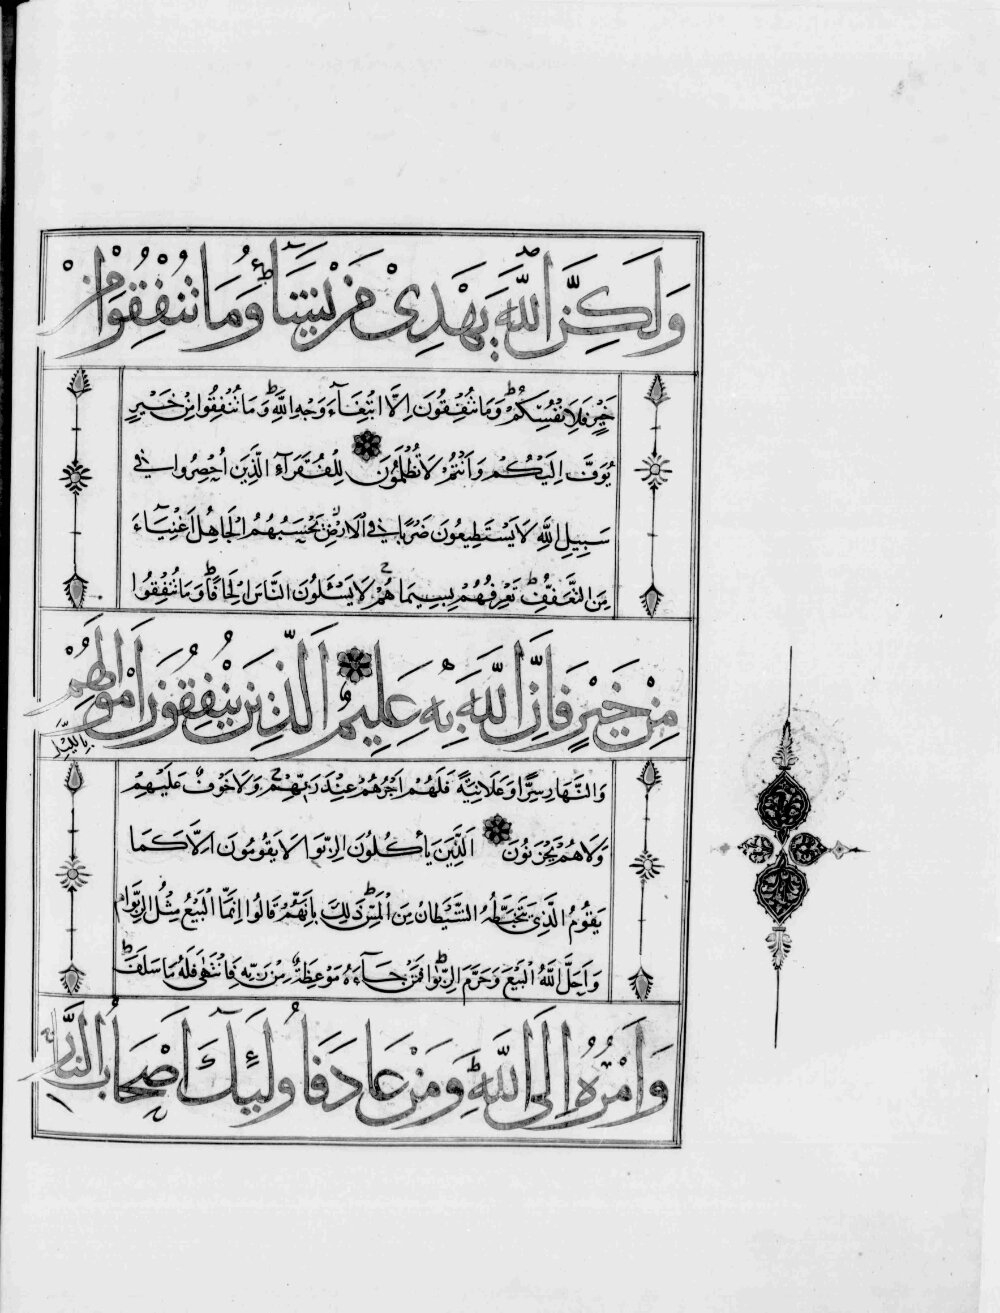 وَلَكِنَّ اللَّهَ يَهْدِى مَنْ يَشَآءُ وَمَا تُنْفِقُوا مِنْ
خَيْرٍ فَلِاَنْفُسِكُمْ وَمَا تُنْفِقُونَ اِلَّا ابْتِغَآءَ وَجْهِ اللَّهِ وَمَا تُنْفِقُوا مِنْ خَيْرٍ
يُوَفَّ اِلَيْكُمْ وَاَنْتُمْ لَا تُظْلَمُونَ لِلْفُقَرَآءِ الَّذِينَ اُحْصِرُوا فِى
سَبِيلِ اللَّهِ لَا يَسْتَطِيعُونَ ضَرْبًا فِى الْاَرْضِ يَحْسَبُهُمُ الْجَاهِلُ اَغْنِيَآءَ
مِنَ التَّعَفُّفِ تَعْرِفُهُمْ بِسِيمَاهُمْ لَا يَسْئَلُونَ النَّاسَ اِلْحَافًا وَمَا تُنْفِقُوا
مِنْ خَيْرٍ فَاِنَّ اللَّهَ بِهِ عَلِيمٌ اَلَّذِينَ يُنْفِقُونَ اَمْوَالَهُمْ
بِالَّيْلِ
وَالنَّهَارِ سِرًّا وَعَلَانِيَةً فَلَهُمْ اَجْرُهُمْ عِنْدَ رَبِّهِمْ وَلَا خَوْفٌ عَلَيْهِمْ
وَلَا هُمْ يَحْزَنُونَ اَلَّذِينَ يَأْكُلُونَ الرِّبٰوا لَا يَقُومُونَ اِلَّا كَمَا
يَقُومُ الَّذِى يَتَخَبَّطُهُ الشَّيْطَانُ مِنَ الْمَسِّ ذَلِكَ بِاَنَّهُمْ قَالُوا اِنَّمَا الْبَيْعُ مِثْلُ الرِّبٰوا
وَاَحَلَّ اللَّهُ الْبَيْعَ وَحَرَّمَ الرِّبٰوا فَمَنْ جَآءَهُ مَوْعِظَةٌ مِنْ رَبِّهِ فَانْتَهَى فَلَهُ مَا سَلَفَ
وَاَمْرُهُ اِلَى اللَّهِ وَمَنْ عَادَ فَاُولَئِكَ اَصْحَابُ النَّارِ